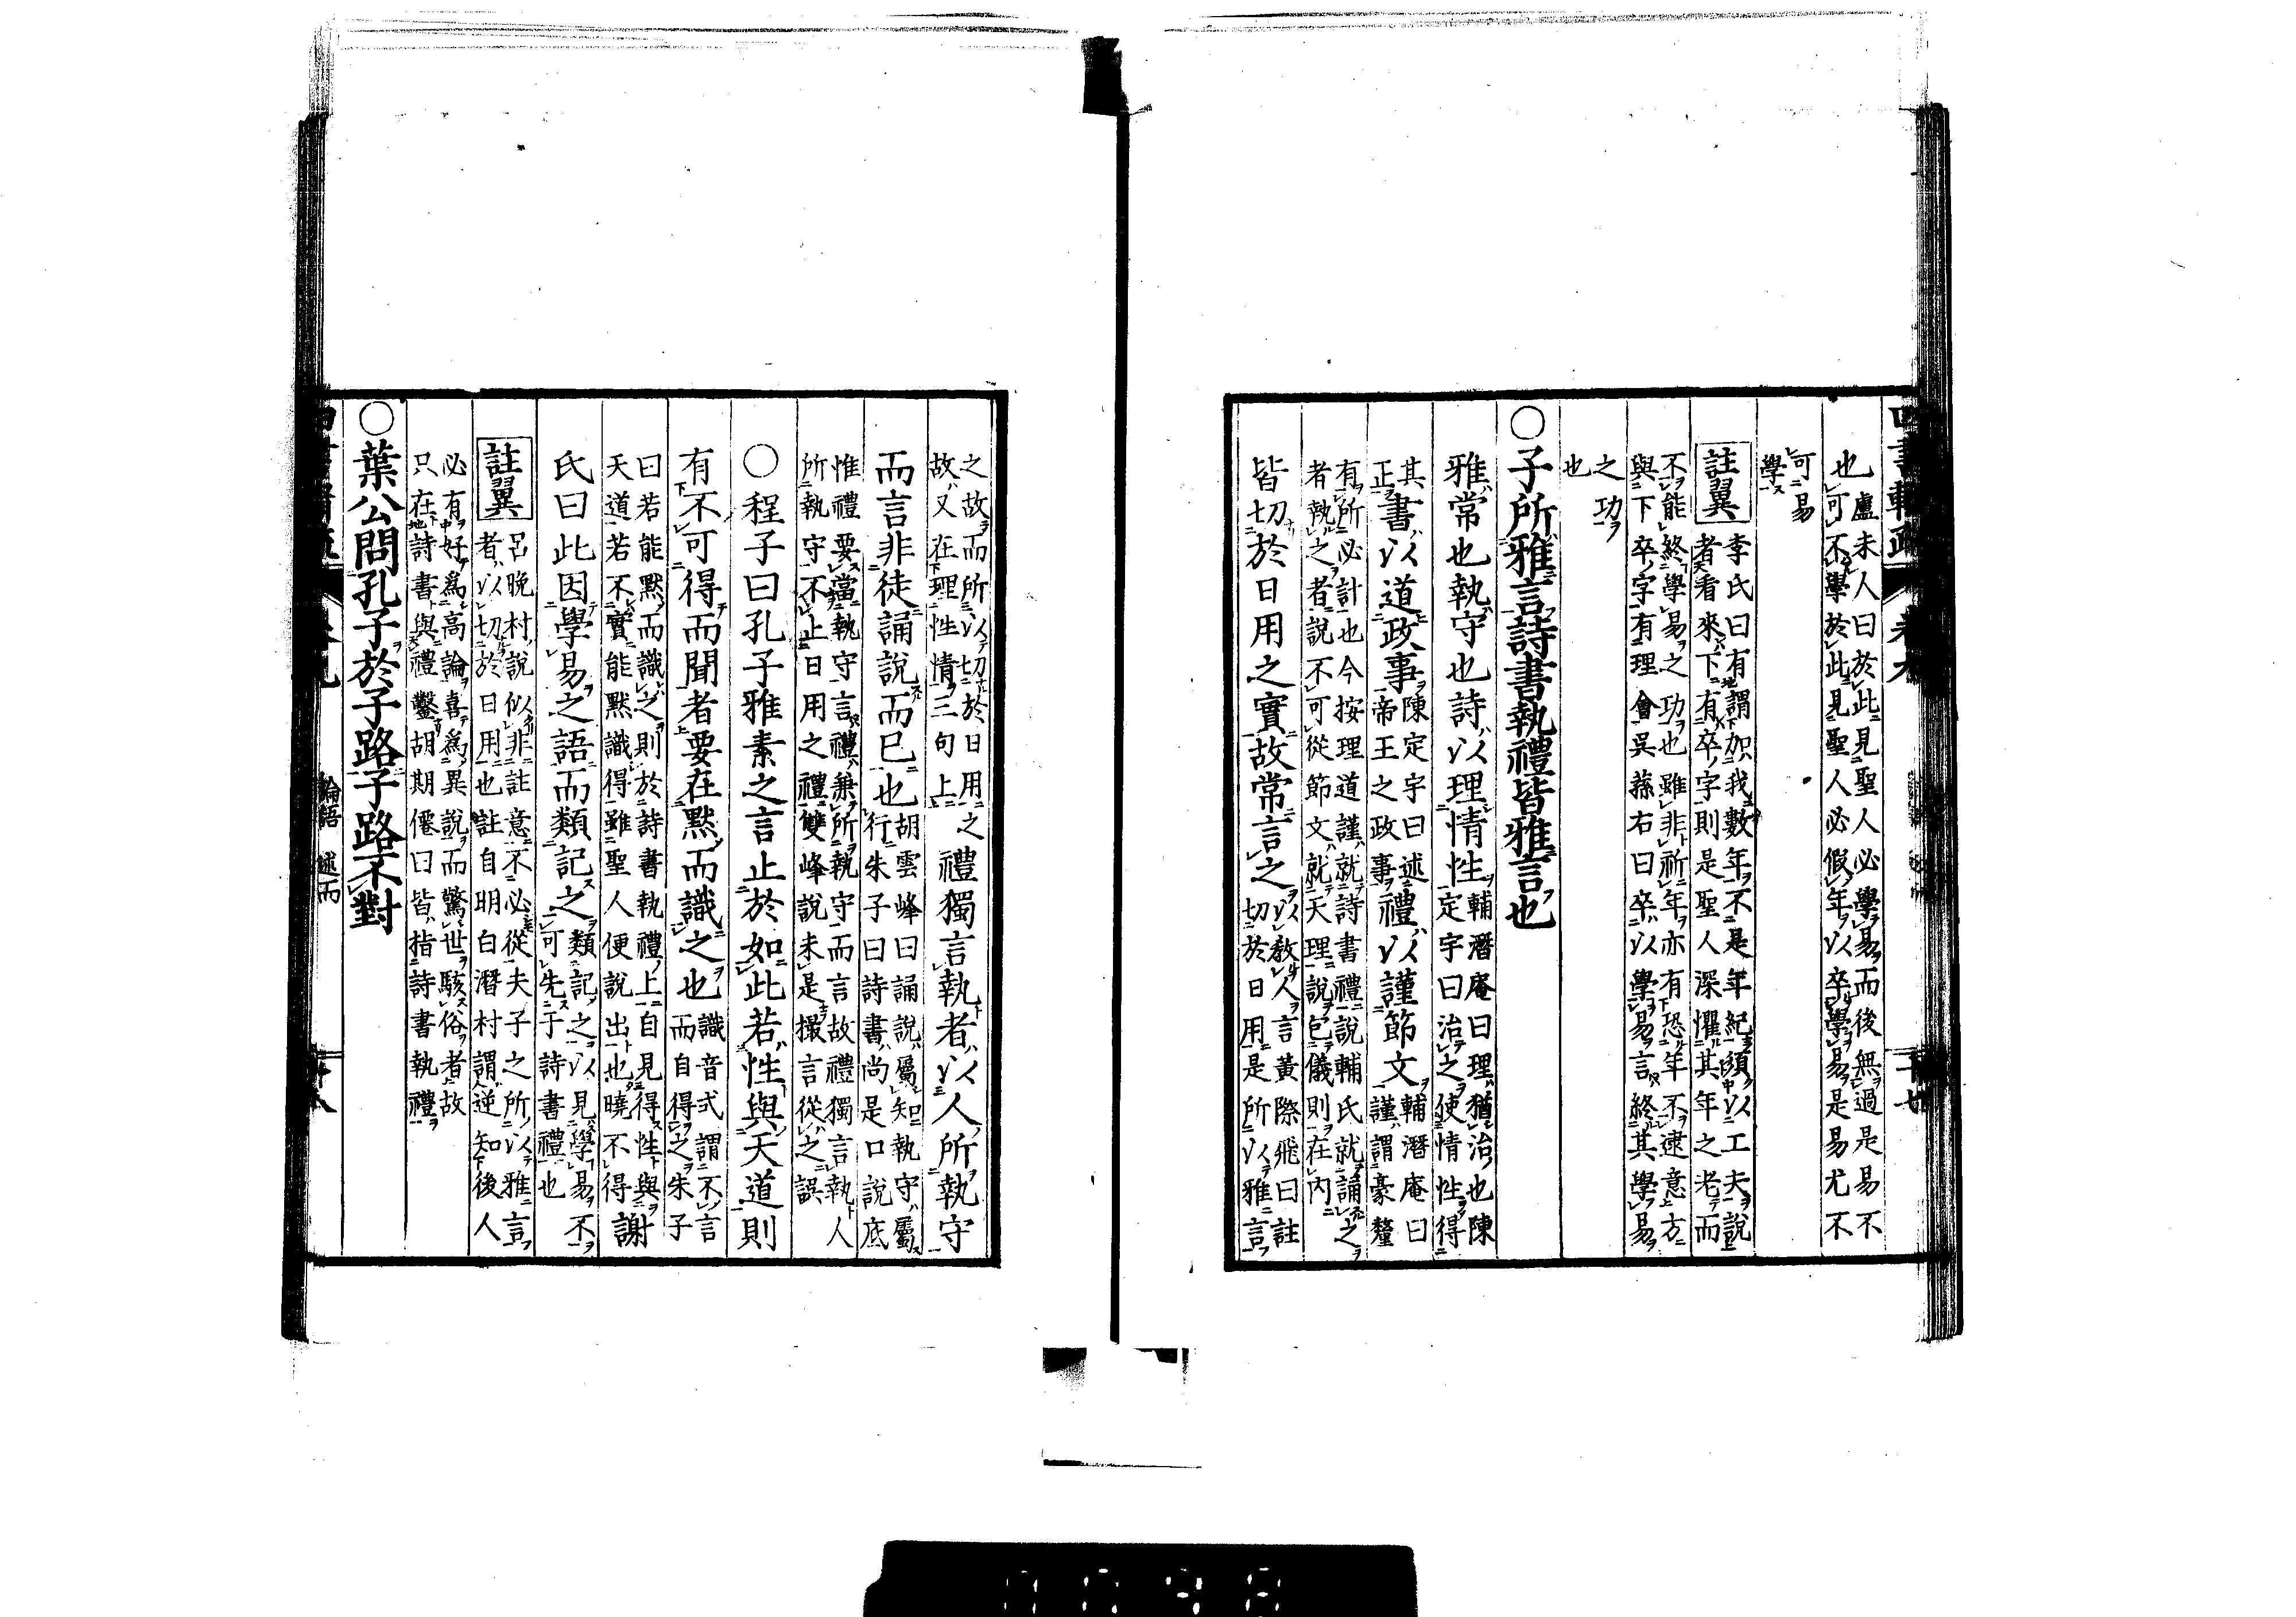 也盧未人曰於此見聖人必學易而後無過是易不
可不學於此見聖人必假年以卒學易是易尤不
可易
學
註翼李氏曰有謂加我數年不是年紀須以工夫說
者看來下有卒字則是聖人深懼其年之老而
不能終學易之功也雖非祈年亦有恐年不逮意方
與下卒字有理會吳蓀右曰卒以學易言終其學易
之功
也
○子所雅言詩書執禮皆雅言也
雅常也執守也詩以理情性輔潛庵曰理猶治也陳
定宇曰治之使情性得
其
正書以道政事陳定宇曰述
帝王之政事禮以謹節文輔潛庵曰
謹謂豪釐
有所必計也今按理道謹就詩書禮說輔氏就誦之
者執之者說不可從節文就天理說包儀則在內
皆切於日用之實故常言之以教人言黃際飛曰註
切於日用是所以雅言
之故而所以切於日用之
故又在理性情三句上禮獨言執者以人所執守
而言非徒誦說而已也胡雲峰曰誦說屬知執守屬
行朱子曰詩書尚是口說底
惟禮要當執守言禮兼所執守而言故禮獨言執人
所執守不止日用之禮雙峰說未是撮言從之誤
○程子曰孔子雅素之言止於如此若性與天道則
有不可得而聞者要在默而識之也識音式謂不言
而自得之朱子
曰若能默而識之則於詩書執禮上自見得性與
天道若不實能默識得雖聖人便說出也曉不得謝
氏曰此因學易之語而類記之類記之以見學易不
可先于詩書禮也
註翼呂晚村說似非註意不必從夫子之所以雅言
者以切於日用也註自明白潛村謂逆知後人
必有好為高論喜為異說而驚世駭俗者故
只在詩書與禮鑿胡期僊曰皆指詩書執禮
○葉公問孔子於子路子路不對
論語 述而